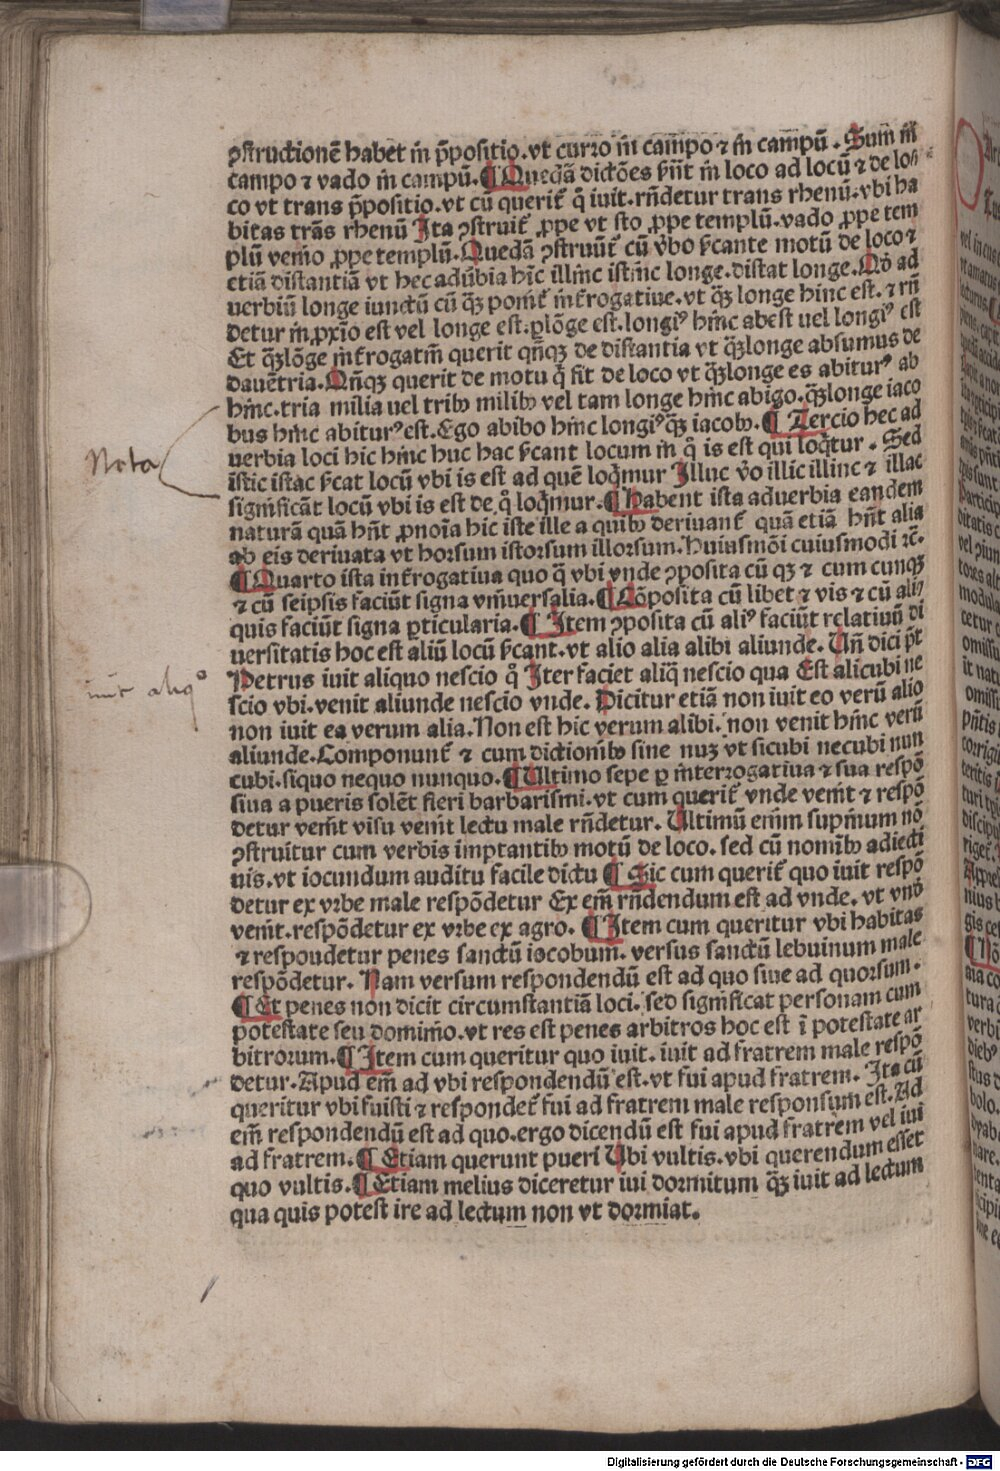 ꝯſtructionē habet in p̄poſitio. vt curro in campo ⁊ in campū. Sum in
campo ⁊ vado in campū. ¶ Quedā dictōes ẜuīt in loco ad locū ⁊ de lo
co vt trans p̄poſitio. vt cū querit̄ q̊ iuit. rn̄detur trans rhenū. vbi ha
bitas trās rhenū Ita ꝯſtruit̄ ꝓpe vt ſto ꝓpe templū. vado ꝓpe tem
plū venio ꝓpe templū. Quedā ꝯſtruūt̄ cū v̄bo ẜcante motū de loco ⁊
etiā diſtantiā vt hec adūbia hīc illinc iſtinc longe. diſtat longe. Qn̄ ad
uerbiū longe iunctū cū q̄ꝫ ponit̄ int̄rogatiue. vt q̄ꝫ longe hinc eſt. ⁊ rn̄
detur in ꝓxīo eſt vel longe eſt. ꝑlōge eſt. longiꝰ hinc abeſt uel longiꝰ eſt
Et q̄ꝫlōge int̄rogatiū querit qn̄qꝫ de diſtantia vt q̄ꝫlonge abſumus de
dauētria. Qn̄qꝫ querit de motu q̊ fit de loco vt q̄ꝫlonge es abiturꝰ ab
hinc. tria milia uel tribꝰ milibꝰ vel tam longe hinc abigo. q̄ꝫlonge iaco
bus hinc abiturꝰ eſt. Ego abibo hinc longiꝰ q̄ꝫ iacobꝰ. ¶ Tercio hec ad
uerbia loci hic hinc huc hac ẜcant locum in q̊ is eſt qui loq̄tur. Sed
iſtic iſtac ẜcat locū vbi is eſt ad quē loq̄mur Illuc v̊o illic illinc ⁊ illac
ſignificāt locū vbi is eſt de q̊ loq̄mur. ¶ Habent iſta aduerbia eandem
naturā quā hn̄t ꝓnoīa hic iſte ille a quibꝰ deriuant̄ quā etiā hn̄t alia
ab eis deriuata vt horſum iſtorſum illorſum. Huiuſmōi cuiuſmodi ⁊c̄.
¶ Quarto iſta int̄rogatiua quo q̄ vbi vnde ꝯpoſita cū qꝫ ⁊ cum cunqꝫ
⁊ cū ſeipſis faciūt ſigna vniuerſalia. ¶ Cōpoſita cū libet ⁊ vis ⁊ cū aliꝰ
quis faciūt ſigna ꝑticularia. ¶ Item ꝯpoſita cū aliꝰ faciūt relatiuū di
uerſitatis hoc eſt aliū locū ẜcant. vt alio alia alibi aliunde. Un̄ dici p̄t
Petrus iuit aliquo neſcio q̊ Iter faciet aliq̄ neſcio qua Eſt alicubi ne
ſcio vbi. venit aliunde neſcio vnde. Dicitur etiā non iuit eo verū alio
non iuit ea verum alia. Non eſt hic verum alibi. non venit hinc verū
aliunde. Componunt̄ ⁊ cum dictionibꝰ ſine nuꝫ vt ſicubi necubi nun
cubi. ſiquo nequo nunquo. ¶ Ultimo ſepe ꝑ interrogatiua ⁊ ſua reſpō
ſiua a pueris ſolēt fieri barbariſmi. vt cum querit̄ vnde venit ⁊ reſpō
detur venit viſu venit lectu male rn̄detur. Ultimū enim ſupinum nō
ꝯſtruitur cum verbis imptantibꝰ motū de loco. ſed cū nominībꝰ adiecti
uis. vt iocundum auditu facile dictu ¶ Sic cum querit̄ quo iuit reſpō
detur ex vrbe male reſpōdetur Ex em̄ rn̄dendum eſt ad vnde. vt vnd̄
venit. reſpōdetur ex vrbe ex agro. ¶ Item cum queritur vbi habitas
⁊ reſpondetur penes ſanctū iacobum. verſus ſanctū lebuinum male
reſpōdetur. Nam verſum reſpondendū eſt ad quo ſiue ad quorſum.
¶ Et penes non dicit circumſtantiā loci. ſed ſignificat perſonam cum
poteſtate ſeu dominio. vt res eſt penes arbitros hoc eſt ī poteſtate ar
bitrorum. ¶ Item cum queritur quo iuit. iuit ad fratrem male reſpō
detur. Apud em̄ ad vbi reſpondendū eſt. vt fui apud fratrem. Ita cū
queritur vbi fuiſti ⁊ reſpondet̄ fui ad fratrem male reſponſum eſt. Ad
em̄ reſpondendū eſt ad quo. ergo dicendū eſt fui apud fratrem vel iui
ad fratrem. ¶ Etiam querunt pueri Ubi vultis. vbi querendum eſſet
quo vultis. ¶ Etiam melius diceretur iui dormitum q̄ꝫ iuit ad lectum
qua quis poteſt ire ad lectum non vt dormiat.
Nota
iuit aliqº
Digitalisierung gefördert durch die Deutsche Forschungsgemeinschaft - DFG